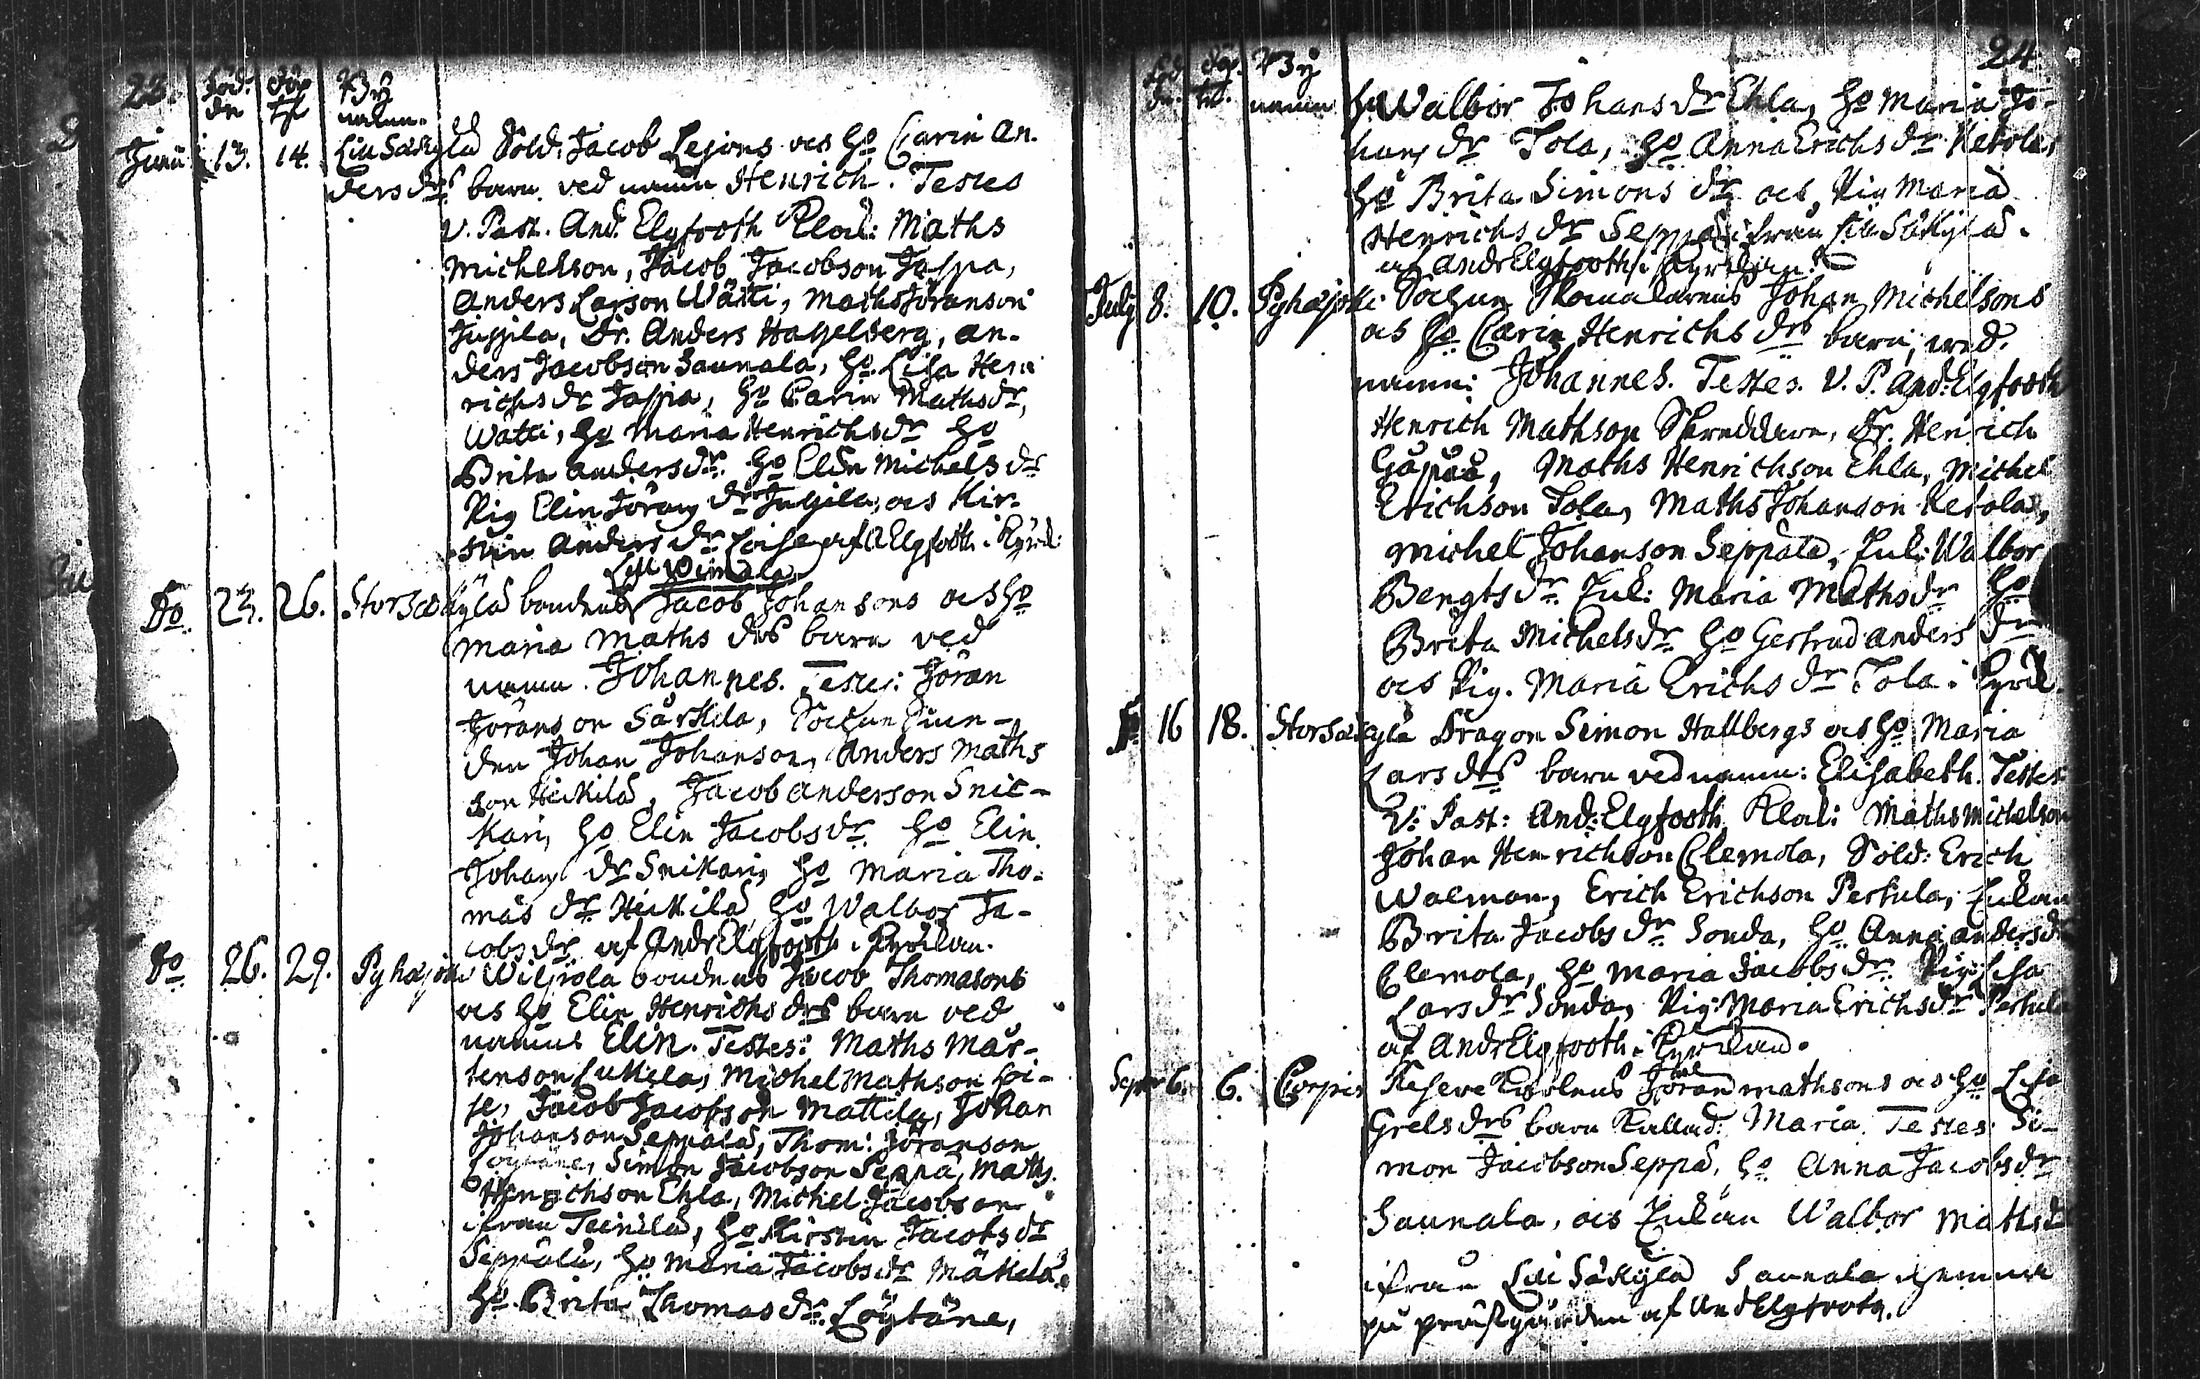 23.
Föd: Döp By
dn tt namn.
Junii 13. 14. Lilla Säkylä Sold: Jacob Lejons och Ho Carin An-
ders drs barn ved namn Henrich. Testes
V. Past. And. Elgfooth Klock: Maths
Michelson, Jacob Jacobson Jaspa,
Anders Larson Wätti, Maths Jöranson
Jussila, Dr. Anders Hagelberg, An-
ders Jacobson Saunala, Ho Lisa Hen-
richs dr Jaspa, Ho Carin Maths dr,
Wätti, Ho Maria Henrichs dr Ho
Brita Anders dr. Ho Elin Michels dr
Pig Elin Jörans dr Jussila, och Kir-
stin Anders dr Loise af A Elgfooth i Kyrck:
Do 23. 26. Stor Säkylä bondens Jacob Johansons och Ho
Maria Maths drs barn ved
namn. Johannes. Testes: Jöran
Jöranson Särkila, Sochne
den Johan Johanson, Anders Maths
son Heikilä, Jacob Anderson Snic-
kari, Ho Elin Jacobs dr. Ho Elin
Johans dr Snikari, Ho Maria Tho-
mas dr Heikilä, Ho Walbor Ja-
cobs dr af And Elgfooth i Kyrckan.
Do 26. 29. Pyhäjoki bondens Jacob Thomasons
och Ho Elin Henrichs drs barn ved
namns Elin. Testes: Maths Mår-
tenson Lukkila, Michel Mathson Loi-
se, Jacob Jacobson Mattila, Johan
Johanson Seppälä, Thom: Jöranson
Löytäne, Simon Jacobson Seppä, Maths
Henrichson Ehla, Michel Jacobson
ifrån Teinilä, Ho Kirstin Jacobs dr
Seppälä, Ho Maria Jacobs dr Mäkilä
Ho Brita Thomas dr. Löytäne,
24
Föd Döp. By
dn. tt. namn
Ho Walbor Johans dr Ehla, Ho Maria Jo-
hans dr Tola, Ho Anna Erichs dr Ketola,
Ho Brita Simons dr och Pig Maria
Henrichs dr Seppä ifrån Lilla Säkylä.
af And Elgfooth i Kyrckan.
July 8. 10. Pyhäjoki Sochne Skomakarens Johan Michelsons
och Ho Carin Henrichs drs barn, med
namn: Johannes. Testes. V. P. And: Elgfooth
Henrich Mathson Skreddare, Dr. Henrich
Maths Henrichson Ehla, Michel
Erichson Tola, Maths Johanson Ketola,
Michel Johanson Seppälä, Walbor
Bengts dr. Maria Maths dr Ho
Brita Michels dr. Ho Gertrud Anders dr
och Pig. Maria Erichs dr Tola i Kyrck.
Do 16 18. Stor Säkylä Dragon Simon Hallbergs och Ho Maria
Lars drs barn ved namn: Elisabeth. Testes
V: Past: And: Elgfooth Klock: Maths Michelson
Johan Henrichson Clemola, Sold: Erich
Walman, Erich Erichson Pertula,
Brita Jacobs dr Sonda, Ho Anna Anders dr
Clemola, Ho Maria Jacobs dr. Pig: Lisa
Lars dr Sonda, Pig: Maria Erichs dr Pertula
af And Elgfooth i Kyrckan.
Septr 6. 6. Corpis Jöran Mathsons och Ho Lisa
Grels drs barn Kallad: Maria. Testes: Si-
mon Jacobson Seppä, Ho Anna Jacobs dr
Saunala, och Walbor Maths dr
ifrån Lilla Säkylä Saunala hemma
på prästgården af And Elgfooth.